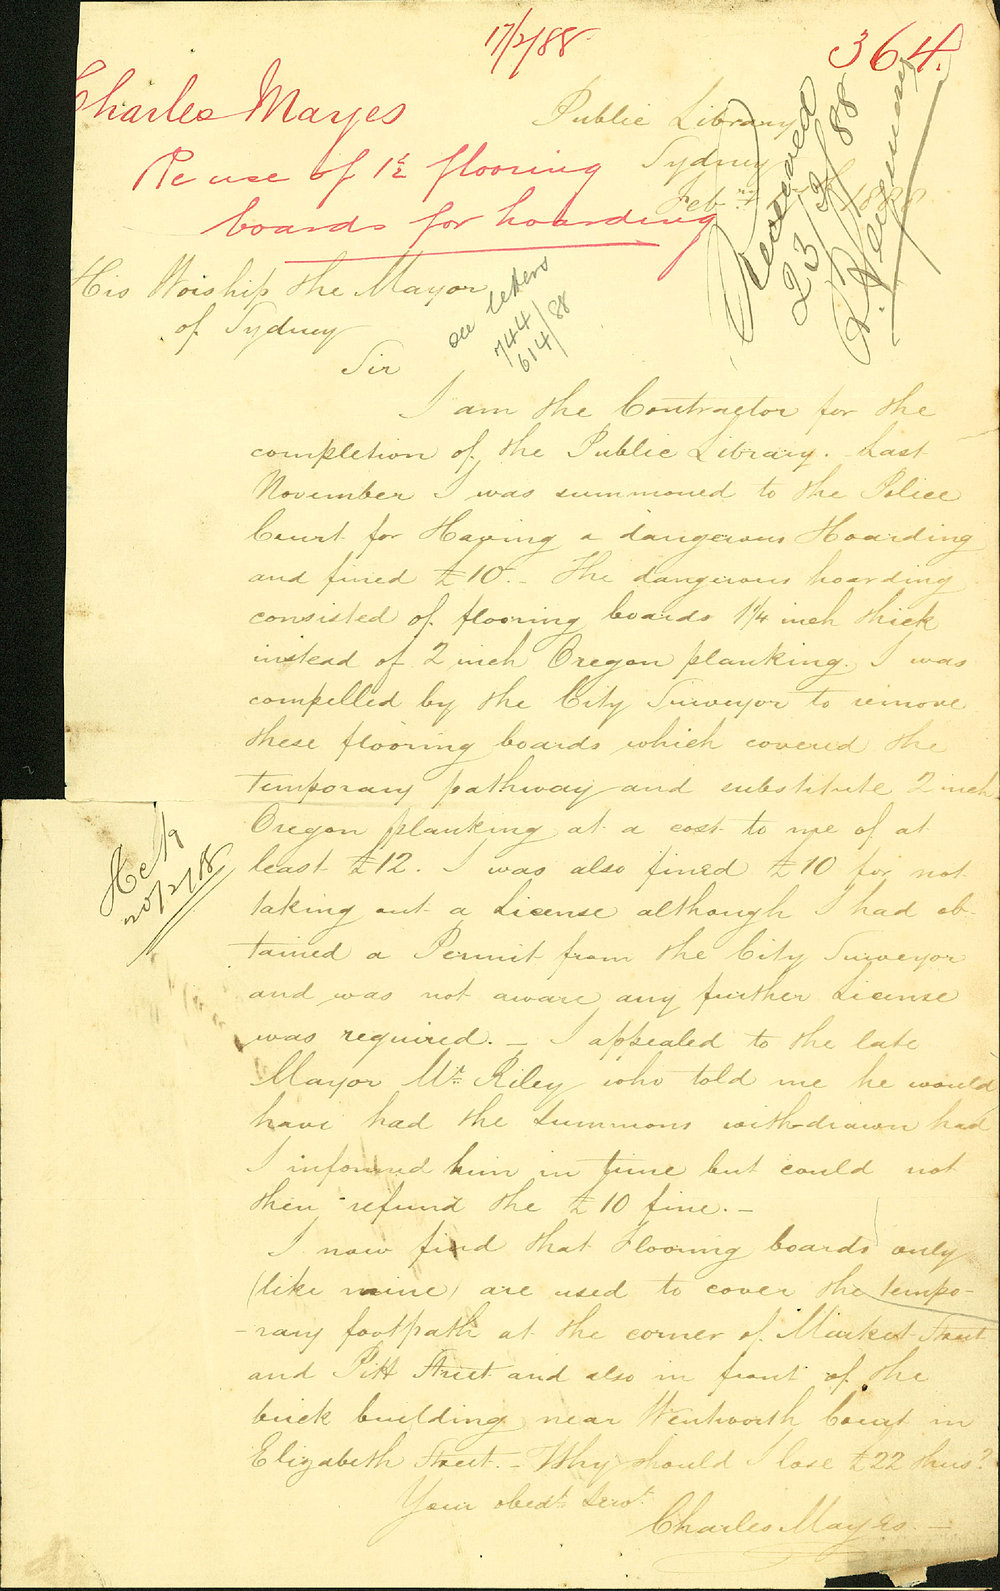 17/2/88
364.
Charles Mayes
Re use of 1¼ flooring
boards for hoarding
Public Library
Sydney
Feb 1888
Received
23/2/88
see letters
744
614/88
His Worship the Mayor
of Sydney
Sir
I am the Contractor for the
completion of the Public Library. Last
November I was summoned to the Police
Court for Having a dangerous Hoarding
and fined £10. - The dangerous hoarding
consisted of flooring boards 1¼ inch thick
instead of 2 inch Oregon planking. I was
compelled by the City Surveyor to remove
these flooring boards which covered the
temporary pathway and substitute 2 inch
Oregon planking at a cost to me of at
least £12. I was also fined £10 for not
taking out a License although I had ob-
tained a Permit from the City Surveyor
and was not aware any further License
was required. - I appealed to the late
Mayor Mr Riley who told me he would
have had the Summons withdrawn had
I informed him in time but could not
then refund the £10 fine. -
I now find that Flooring boards only
(like mine) are used to cover the tempo-
-rary footpath at the corner of Market Street
and Pitt Street and also in front of the
brick building near Wentworth Court in
Elizabeth Street. - Why should I lose £22 thus?
Your obedt Servt
Charles Mayes. -
20/2/88